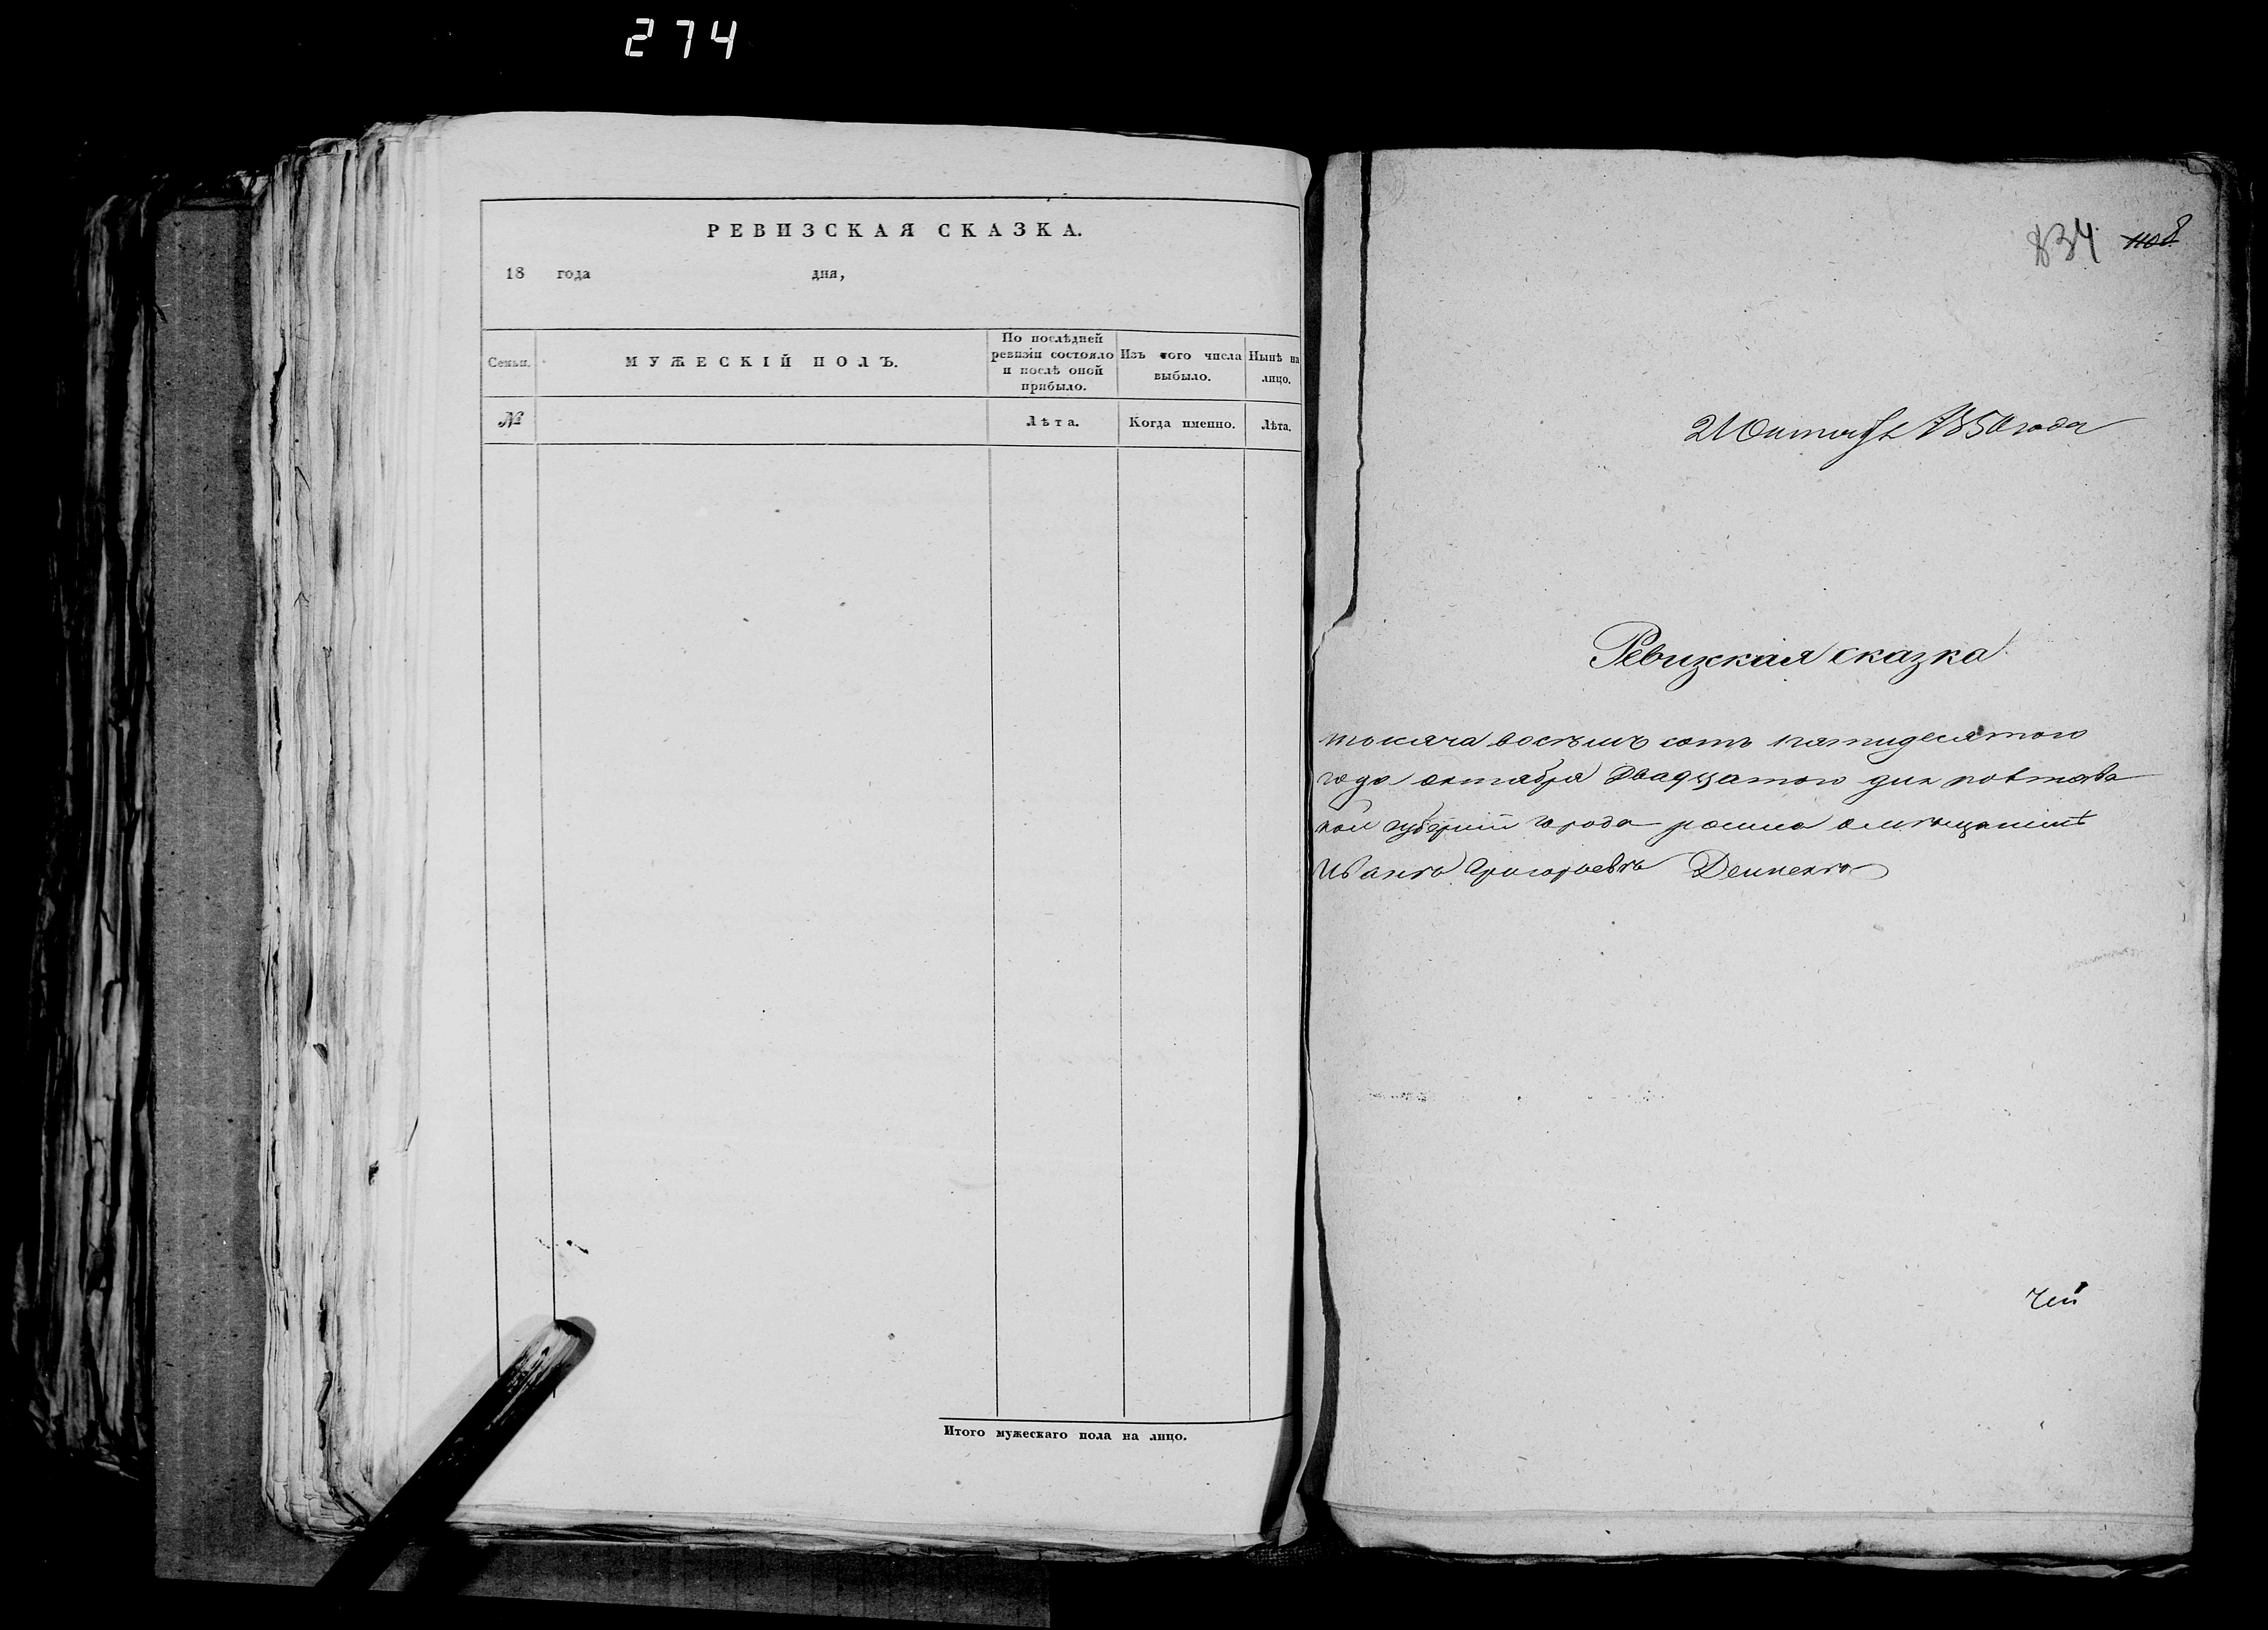 274
РЕВИЗСКАЯ СКАЗКА.
18 года дня,
Семьи.
МУЖЕСКІЙ ПОЛЪ.
По послѣдней ревизіи состояло и послѣ оной прибыло.
Изъ того числа выбыло.
Нынѣ на лицо.
№
Лѣта.
Когда именно.
Лѣта.
Итого мужескаго пола на лицо.
834
21 Октября 1850 года
Ревизская сказка
тысяча восѣмъ сотъ пятидесятого
года октября Двадцатого дня полтав
кой губерніи города ромна омѣщанинѣ
Иванѣ Григорьевѣ